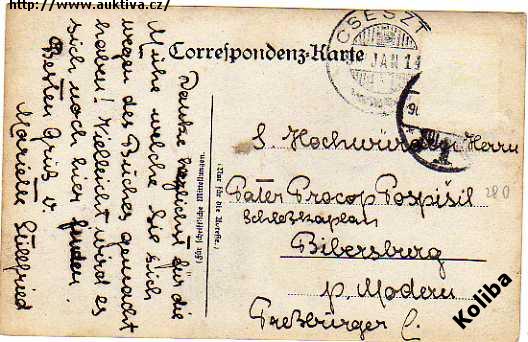 http://www.auktiva.cz/
Correspondenz-Karte
CSESZT
JAN 14
Danke herzlichst für die
Mühe welche Sie sich
wegen des Buches gemacht
haben! Vielleicht wird es
sich noch hier finden.
Besten Gruß v
Marielle
(Für schriftliche Mitteilungen.
(Nur für die Adresse.)
S Hochwürden Herrn
Pater Procop Pospišil
Schloßkaplan
Bibersburg
p. Modern
Preßburger C.
280
Koliba